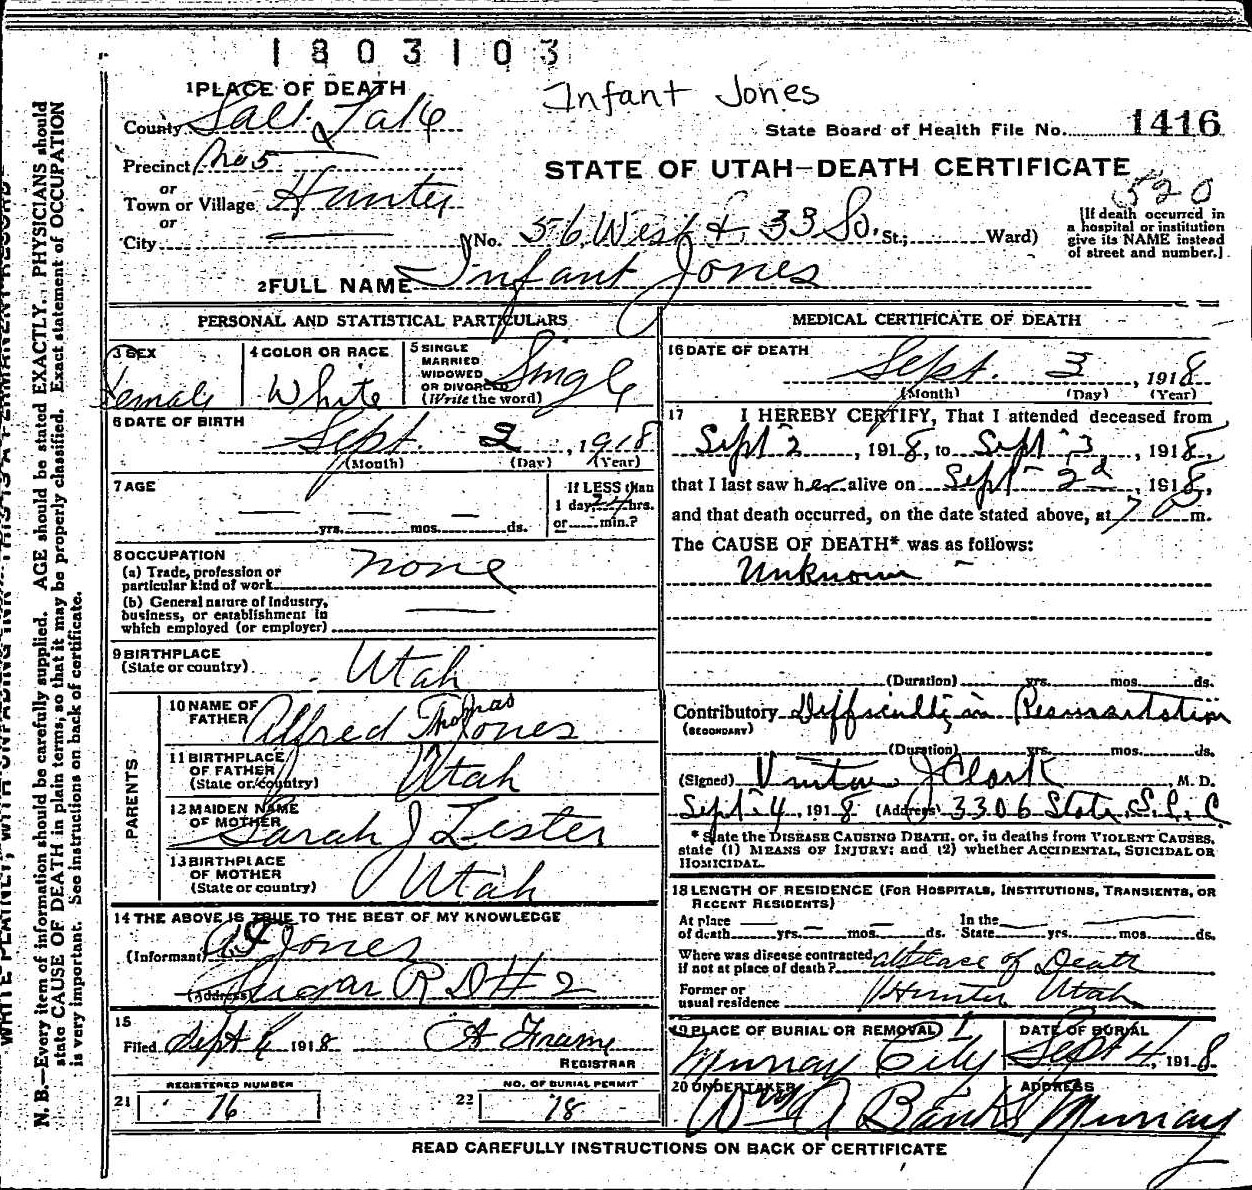 1803103
Infant Jones
1 PLACE OF DEATH
County Salt Lake
State Board of Health File No. 1416
Precinct No 5
STATE OF UTAH—DEATH CERTIFICATE
520
or
Town or Village Hunter
or
City
(No. 56 West & 33 So. St.; Ward)
[If death occurred in
a hospital or institution
give its NAME instead
of street and number.]
2 FULL NAME Infant Jones
PERSONAL AND STATISTICAL PARTICULARS
3 SEX
Female
4 COLOR OR RACE
White
5 SINGLE
MARRIED
WIDOWED
OR DIVORCED
(Write the word)
Single
6 DATE OF BIRTH
Sept. 2, 1918
(Month) (Day) (Year)
7 AGE
— yrs. — mos. — ds.
If LESS than
1 day, 24 hrs.
or min.?
8 OCCUPATION
(a) Trade, profession or
particular kind of work
none
(b) General nature of industry,
business, or establishment in
which employed (or employer)
—
9 BIRTHPLACE
(State or country)
Utah
PARENTS
10 NAME OF
FATHER
Alfred Thomas Jones
11 BIRTHPLACE
OF FATHER
(State or country)
Utah
12 MAIDEN NAME
OF MOTHER
Sarah J Lester
13 BIRTHPLACE
OF MOTHER
(State or country)
Utah
14 THE ABOVE IS TRUE TO THE BEST OF MY KNOWLEDGE
(Informant) Jones
(Address) Sugar R D # 2
15
Filed Sept 6 1918 A Frame
REGISTRAR
REGISTERED NUMBER
21 76
NO. OF BURIAL PERMIT
22 78
MEDICAL CERTIFICATE OF DEATH
16 DATE OF DEATH
Sept. 3, 1918
(Month) (Day) (Year)
17 I HEREBY CERTIFY, That I attended deceased from
Sept 2, 1918, to Sept 3, 1918,
that I last saw her alive on Sept 2d, 1918,
and that death occurred, on the date stated above, at 7 m.
The CAUSE OF DEATH* was as follows:
Unknown —
(Duration) yrs. mos. ds.
Contributory Difficulty in
(SECONDARY)
(Duration) yrs. mos. ds.
(Signed) J Clark M. D.
Sept 4, 1918 (Address) 3306 State, S. L. C.
* State the DISEASE CAUSING DEATH, or, in deaths from VIOLENT CAUSES,
state (1) MEANS OF INJURY; and (2) whether ACCIDENTAL, SUICIDAL OR
HOMICIDAL.
18 LENGTH OF RESIDENCE (FOR HOSPITALS, INSTITUTIONS, TRANSIENTS, OR
RECENT RESIDENTS)
At place
of death — yrs. — mos. — ds.
In the
State yrs. mos. ds.
Where was disease contracted
if not at place of death? at Place of Death
Former or
usual residence Hunter Utah
19 PLACE OF BURIAL OR REMOVAL
Murray City
DATE OF BURIAL
Sept 4, 1918
20 UNDERTAKER
Wm A Banks
ADDRESS
Murray
READ CAREFULLY INSTRUCTIONS ON BACK OF CERTIFICATE
N. B.—Every item of information should be carefully supplied. AGE should be stated EXACTLY. PHYSICIANS should
state CAUSE OF DEATH in plain terms, so that it may be properly classified. Exact statement of OCCUPATION
is very important. See instructions on back of certificate.